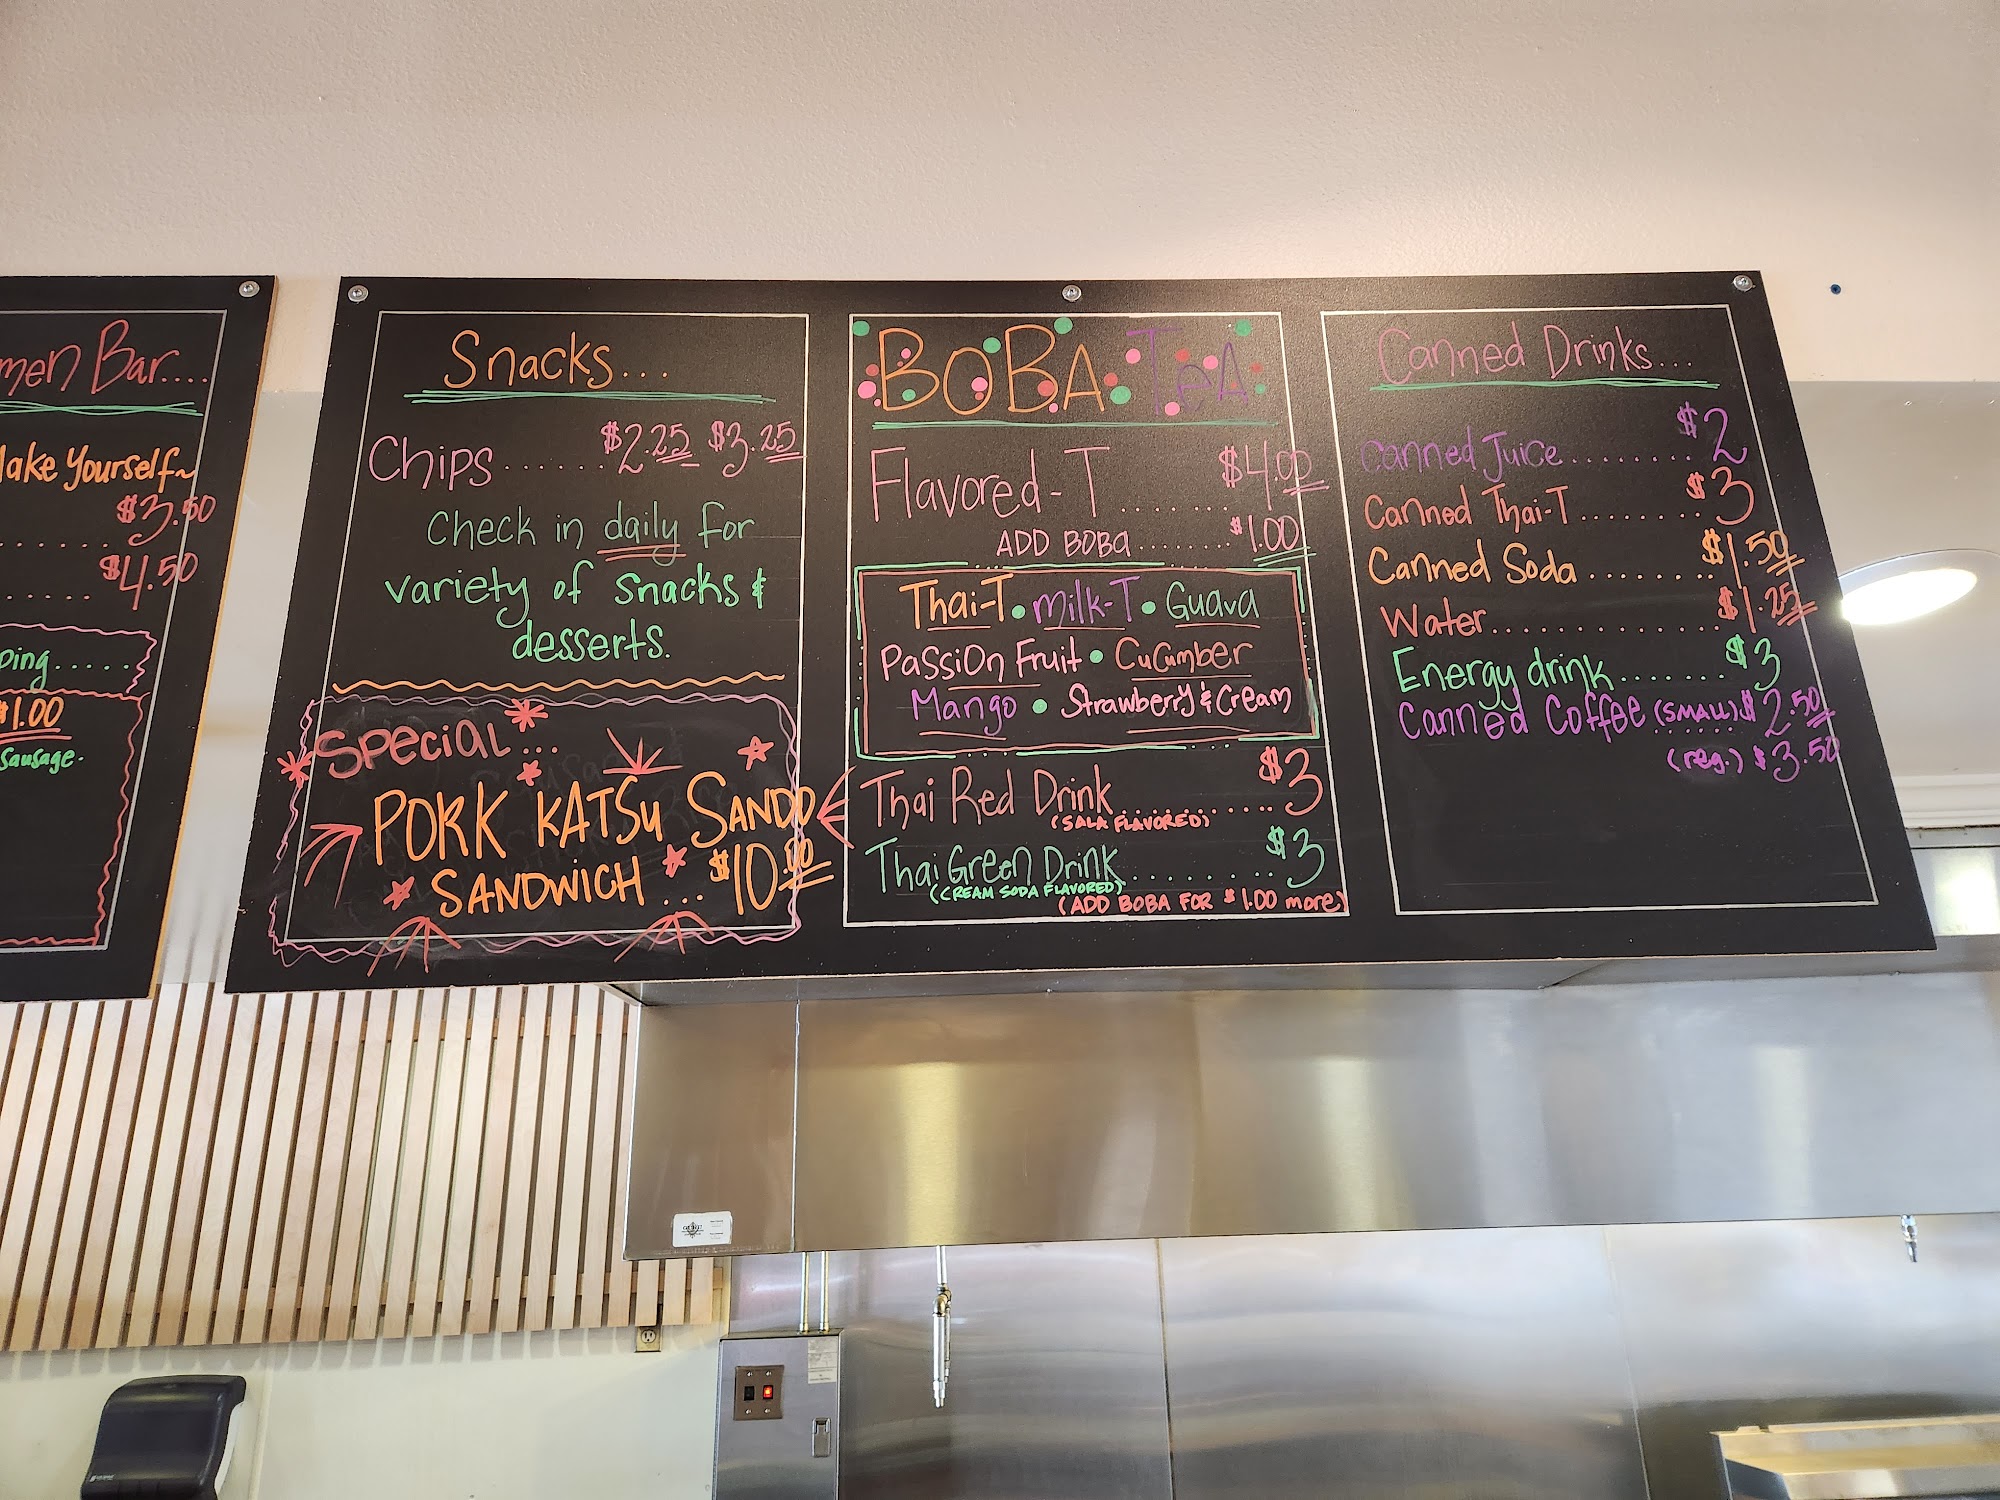 men Bar....
Make Yourself~
$3.50
.....
$4.50
.....
ping.....
$1.00
Sausage.
Snacks...
Chips ...... $2.25 $3.25
Check in daily for
variety of snacks &
desserts.
Special...
PORK KATSU SANDO
SANDWICH ... $10.00
BOBA TeA
Flavored-T ....... $4.00
ADD BOBA ....... $1.00
Thai-T • Milk-T • Guava
Passion Fruit • Cucumber
Mango • Strawberry & Cream
Thai Red Drink .......... $3
(SALA FLAVORED)
Thai Green Drink ......... $3
(CREAM SODA FLAVORED)
(ADD BOBA FOR $1.00 more)
Canned Drinks...
Canned Juice ......... $2
Canned Thai-T ........ $3
Canned Soda ........ $1.50
Water ............. $1.25
Energy drink ....... $3
Canned Coffee (SMALL) $2.50
(reg.) $3.50